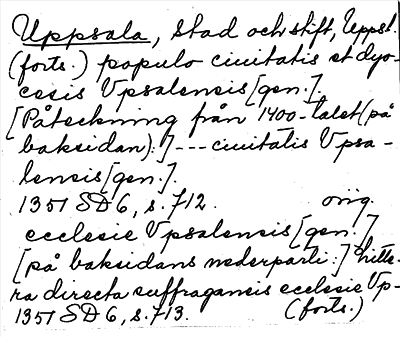 Uppsala, stad och stift, Uppst.
(forts.) populo ciuitatis et dyo-
cesis Vpsalensis [gen.].
[Påteckning från 1400-talet (på
baksidan):] --- ciuitatis Vpsa-
lensis [gen.].
1351 SD 6, s. 712. orig.
ecclesie Vpsalensis [gen.]
[på baksidans nederparti:] litte-
ra directa suffraganeis ecclesie Vp-
1351 SD 6, s. 713. (forts.)